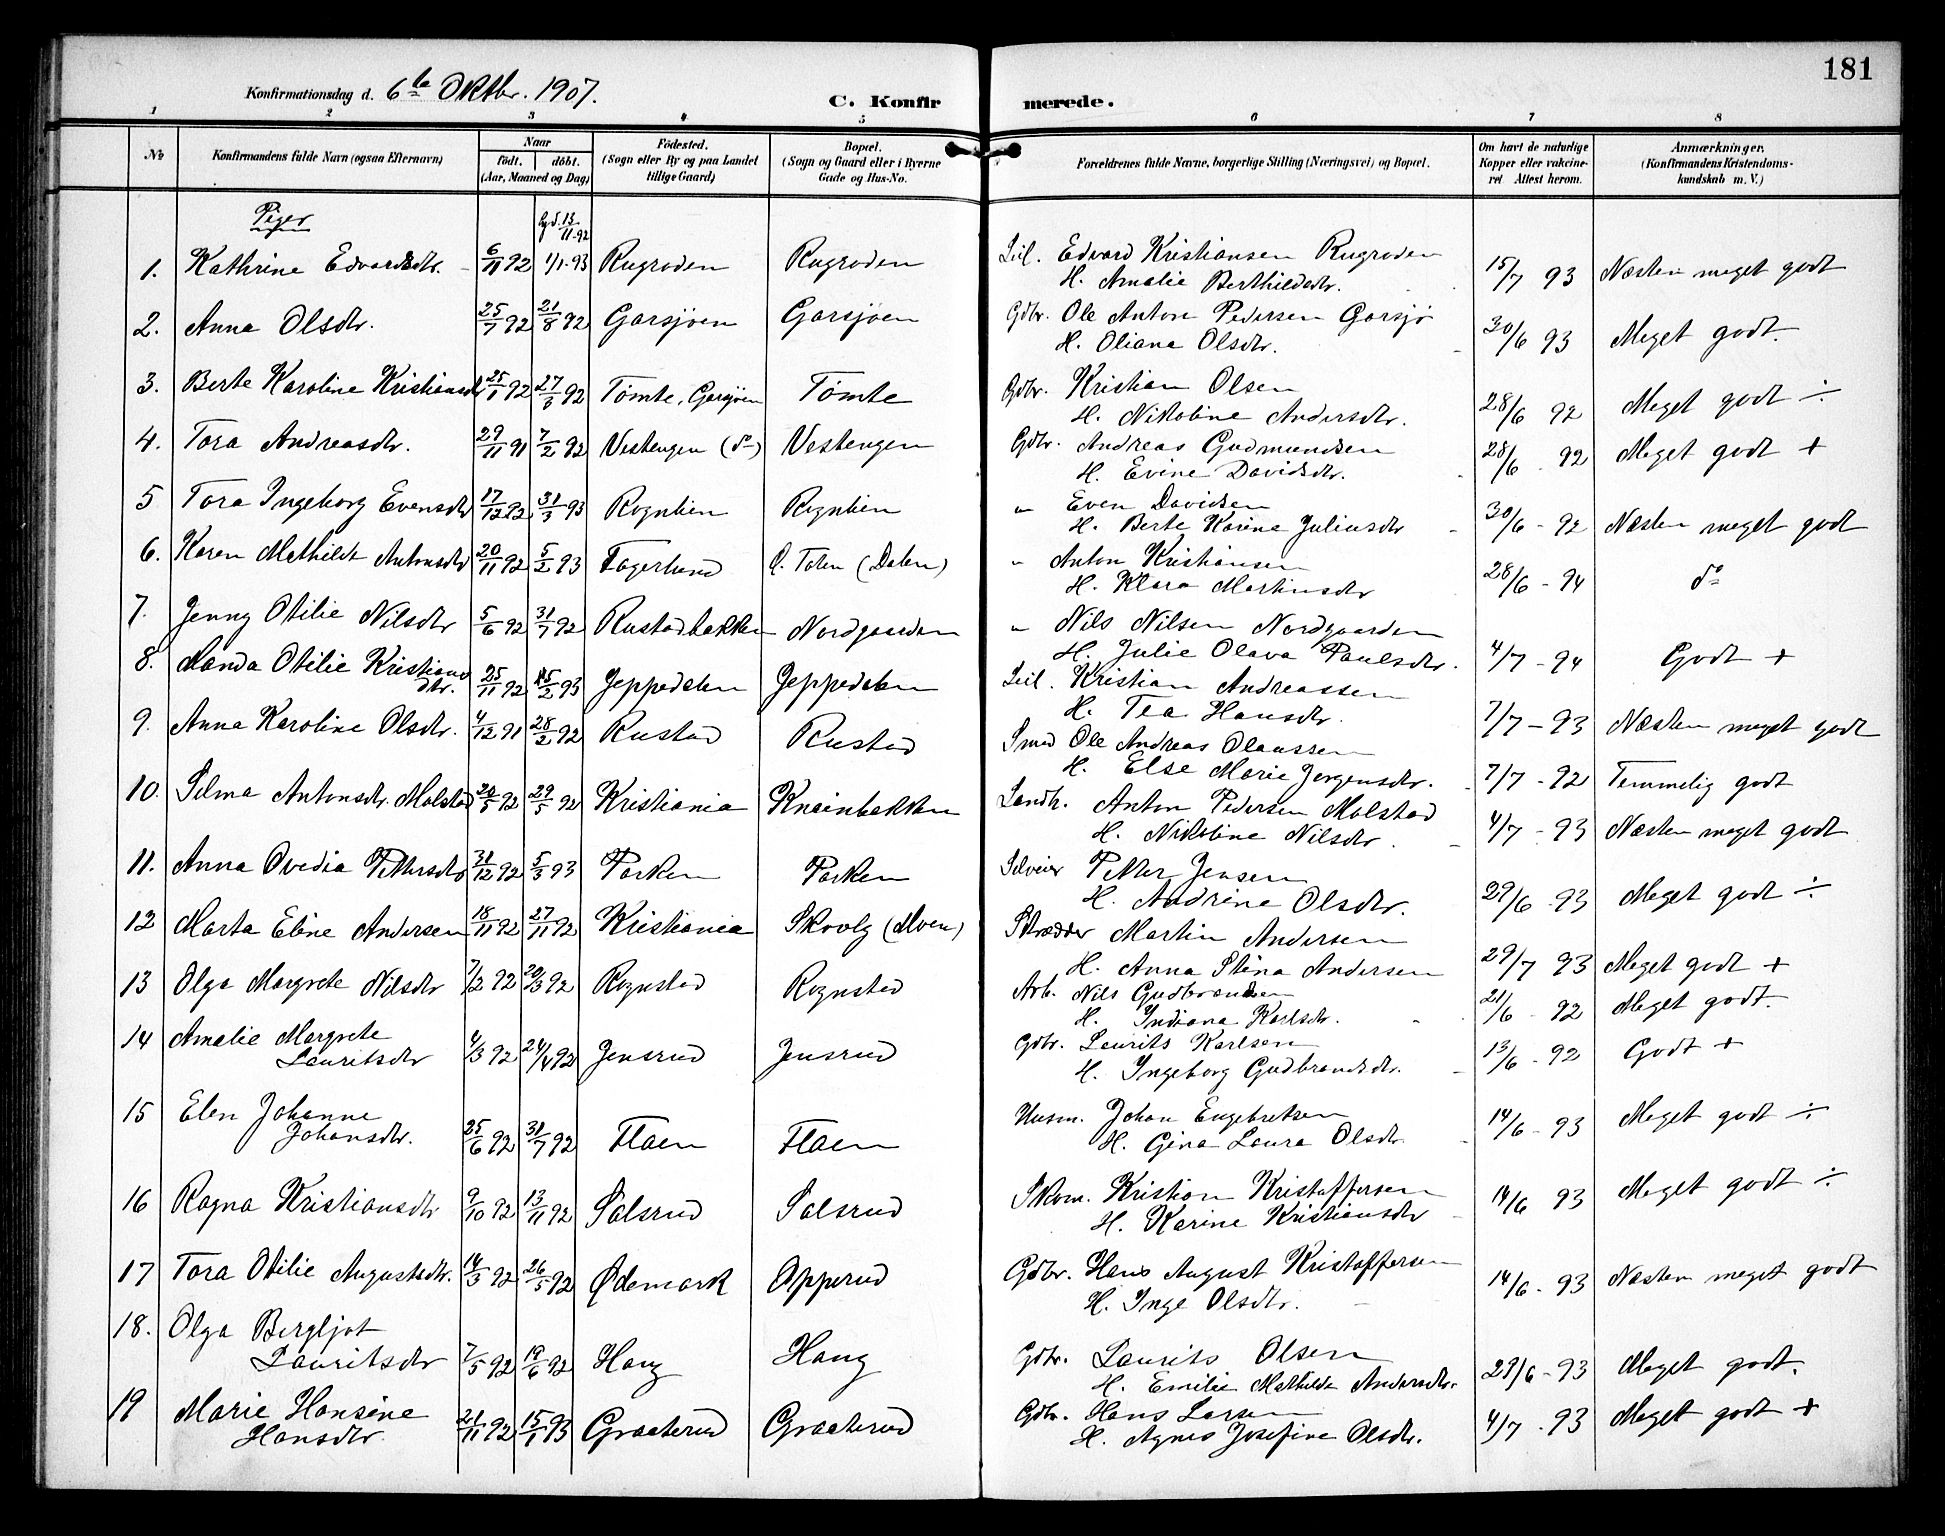 181
Konfirmationsdag d. 6te Oktbr. 1907.
C. Konfirmerede.
1 2 3 4 5 6 7 8
No
Konfirmandens fulde Navn (ogsaa Efternavn)
Naar
födt. döbt.
(Aar, Maaned og Dag)
Födested.
(Sogn eller By og paa Landet
tillige Gaard)
Bopæl.
(Sogn og Gaard eller i Byerne
Gade og Hus-No.
Forældrenes fulde Navne, borgerlige Stilling (Næringsvei) og Bopæl.
Om havt de naturlige
Kopper eller vakcine-
ret Attest herom.
Anmærkninger.
(Konfirmandens Kristendoms-
kundskab m. V.)
Piger
13/11-92
1. Kathrine Edvardsdtr. 6/11 92 1/1-93 Rugroden Rugroden Edvard Kristiansen Rugroden 15/7 93 Næsten meget godt
H. Amalie Berthildsdtr.
2. Anna Olsdtr. 25/7 92 21/8 92 Garsjøen Garsjøen Gdbr. Ole Anton Pedersen Garsjø 30/6 93 Meget godt.
H. Oliana Olsdtr.
3. Berte Karoline Kristiansdtr 25/1 92 27/3 92 Tömte, Garsjøen Tömte Gdbr. Kristian Olsen 28/6 92 Meget godt ÷
H. Nikoline Andersdtr.
4. Tora Andreasdtr. 29/11 91 7/2 92 Vestengen (do) Vestengen Gdbr. Andreas Gudmundsen 28/6 - 92 Meget godt +
H. Evine Davidsdtr.
5 Tora Ingeborg Evensdtr 17/12 92 31/3 93 Rognlien Rognlien " Even Davidsen 30/6 - 92 Næsten meget godt
H. Berte Karine Juliusdtr
6. Karen Mathilde Antonsdtr 20/11 92 5/2 93 Fagerlund Ö. Toten (Dalen) " Anton Kristiansen 28/6 - 94 do
H. Klara Martinsdtr
7. Jenny Otilie Nilsdtr 5/6 92 31/7 92 Rustadbakken Nordgaarden " Nils Nilsen Nordgaarden 4/7 - 94 Godt +
H. Julie Olava Paulsdtr.
8. Nanda Otilie Kristians
dtr. 25/11 92 15/2 93 Jeppedalen Jeppedalen Kristian Andreassen 7/7 - 93 Næsten meget godt
H. Tea Hansdtr.
9. Anna Karoline Olsdtr. 4/12 91 28/2 92 Rustad Rustad Smed Ole Andreas Olaussen 7/7 - 92 Temmelig godt
H. Else Marie Jørgensdtr.
10. Selma Antonsdtr. Molstad 20/5 92 29/5 92 Kristiania Kneinbakken Landh. Anton Pedersen Molstad 4/7 - 93 Næsten meget godt
H. Nikoline Nilsdtr.
11. Anna Ovedia Pettersdtr 31/12 92 5/3 93 Parken Parken Selveier Petter Jensen 29/6 - 93 Meget godt ÷
H. Andrine Olsdtr.
12 Marta Eline Andersen 18/11 92 27/11 92 Kristiania Skovly (Moen) Skrædder Martin Andersen 29/7 93 Meget godt +
H. Anna Stina Andersen
13 Olga Margrete Nilsdtr 7/2 92 20/3 92 Rognstad Rognstad Arb. Nils Gudbrandsen 21/6 - 92 Meget godt.
H. Indiana Karlsdtr.
14 Amalie Margrete
Lauritsdtr 4/3 92 24/4 92 Jensrud Jensrud Gdbr. Laurits Karlsen 13/6 - 92 Godt +
H. Ingeborg Gudbrandsdtr.
15 Elen Johanne
Johansdtr. 25/6 92 31/7 92 Flaen Flaen Husm. Johan Engebretsen 14/6 - 93 Meget godt ÷
H. Gina Laura Olsdtr.
16 Ragna Kristiansdtr 9/10 92 13/11 92 Salsrud Salsrud Skom. Kristian Kristoffersen 14/6 93 Meget godt ÷
H. Karine Kristiansdtr
17 Tora Otilie Augustsdtr. 14/3 92 26/5 92 Ödemark Opperud Gdbr. Hans August Kristoffersen 14/6 - 93 Næsten meget godt
H. Inge Olsdtr.
18. Olga Bergljot
Lauritsdtr 7/5 92 19/6 92 Haug Haug Gdbr. Laurits Olsen 29/6 - 93 Meget godt.
H. Emilie Mathilde Andersdtr.
19 Marie Hansine
Hansdtr. 21/11 92 15/1 93 Graaterud Graaterud Gdbr. Hans Larsen 4/7 - 93 Meget godt +
H. Agnes Josefine Olsdtr.